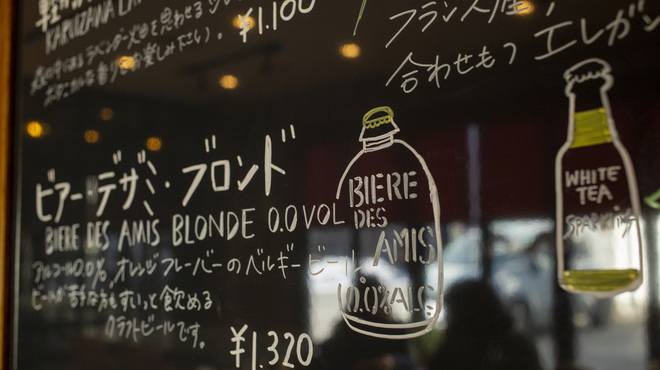 ¥1,100
フランス産
合わせもつ エレガン
ビアー・デザミ・ブロンド
BIERE DES AMIS BLONDE 0.0VOL
アルコール0.0%、オレンジフレーバーのベルギービール
ビールが苦手な方もすいっと飲める
クラフトビールです。
¥1,320
BIERE
DES
AMIS
0.0%ALC
WHITE
TEA
SPARKLING